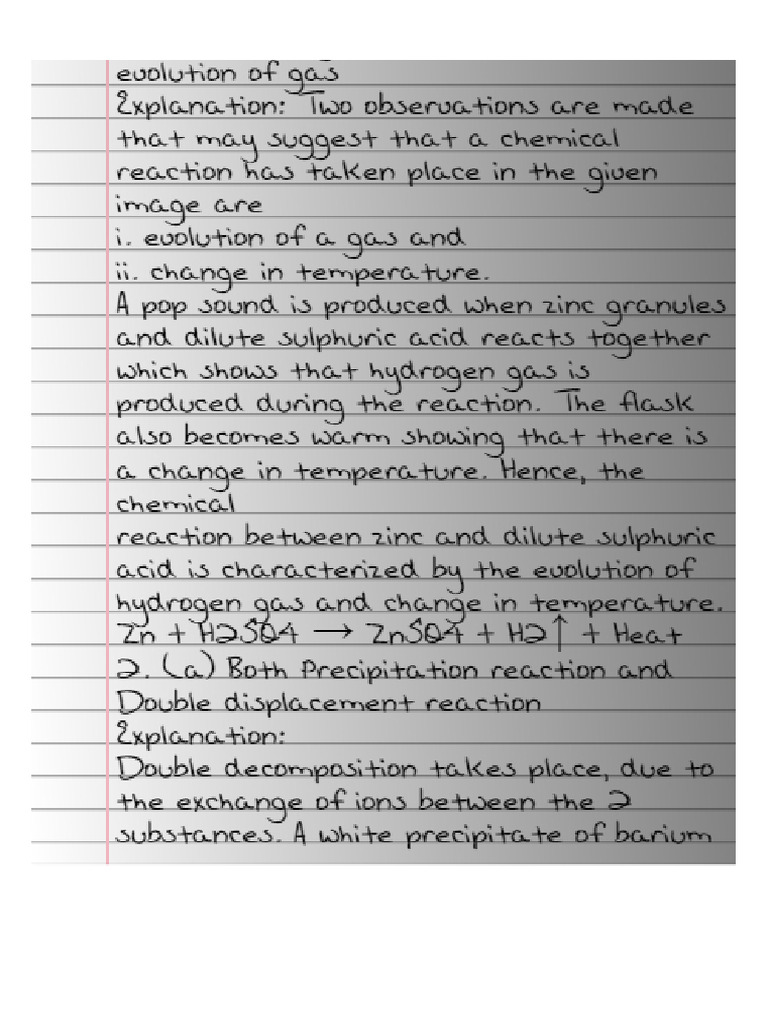 evolution of gas
Explanation: Two observations are made
that may suggest that a chemical
reaction has taken place in the given
image are
i. evolution of a gas and
ii. change in temperature.
A pop sound is produced when zinc granules
and dilute sulphuric acid reacts together
which shows that hydrogen gas is
produced during the reaction. The flask
also becomes warm showing that there is
a change in temperature. Hence, the
chemical
reaction between zinc and dilute sulphuric
acid is characterized by the evolution of
hydrogen gas and change in temperature.
Zn + H2SO4 → ZnSO4 + H2↑ + Heat
2. (a) Both Precipitation reaction and
Double displacement reaction
Explanation:
Double decomposition takes place, due to
the exchange of ions between the 2
substances. A white precipitate of barium